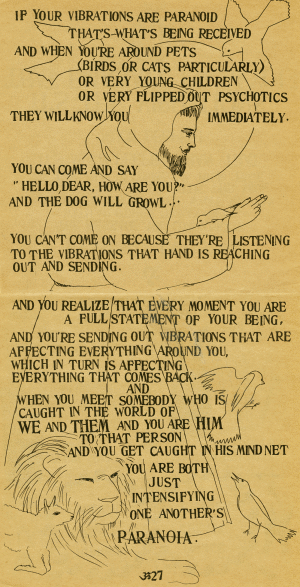 IF YOUR VIBRATIONS ARE PARANOID
THAT'S WHAT'S BEING RECEIVED
AND WHEN YOU'RE AROUND PETS
(BIRDS OR CATS PARTICULARLY)
OR VERY YOUNG CHILDREN
OR VERY FLIPPED OUT PSYCHOTICS
THEY WILL KNOW YOU IMMEDIATELY.
YOU CAN COME AND SAY
"HELLO, DEAR, HOW ARE YOU?"
AND THE DOG WILL GROWL...
YOU CAN'T COME ON BECAUSE THEY'RE LISTENING
TO THE VIBRATIONS THAT HAND IS REACHING
OUT AND SENDING.
AND YOU REALIZE THAT EVERY MOMENT YOU ARE
A FULL STATEMENT OF YOUR BEING,
AND YOU'RE SENDING OUT VIBRATIONS THAT ARE
AFFECTING EVERYTHING AROUND YOU,
WHICH IN TURN IS AFFECTING
EVERYTHING THAT COMES BACK.
AND
WHEN YOU MEET SOMEBODY WHO IS
CAUGHT IN THE WORLD OF
WE AND THEM AND YOU ARE HIM
TO THAT PERSON
AND YOU GET CAUGHT IN HIS MIND NET
YOU ARE BOTH
JUST
INTENSIFYING
ONE ANOTHER'S
PARANOIA.
27